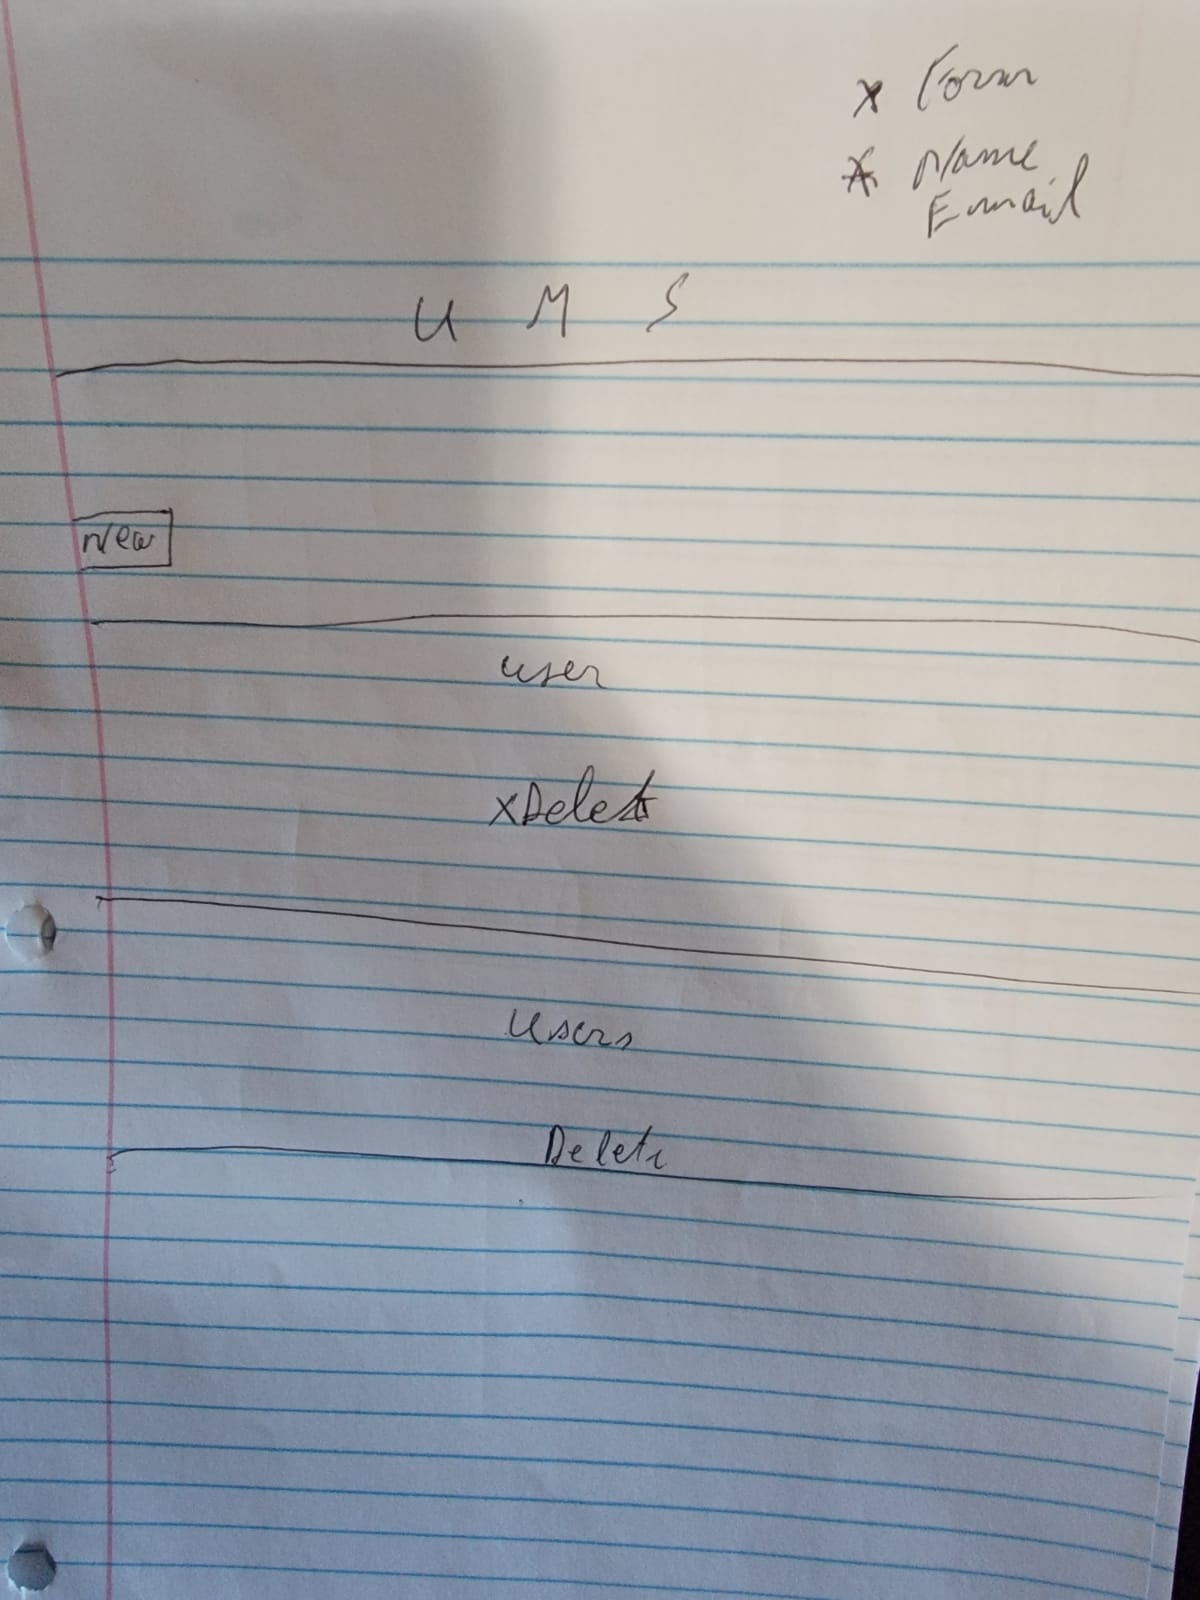 x Form
* Name
Email
U M S
New
user
x Delete
Users
Delete